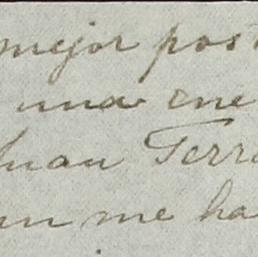 mejor post
una ene
Juan Terr
un me ha